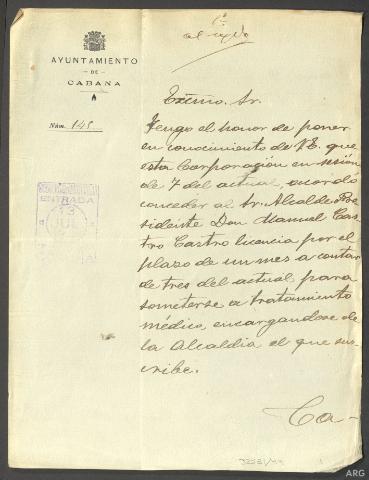 al expdo
AYUNTAMIENTO
DE
CABANA
Núm. 145
Excmo. Sr.
Tengo el honor de poner
en conocimiento de V.E. que
esta Corporación en sesión
de 7 del actual, acordó
conceder al Sr. Alcalde Pre
sidente Don Manuel Cas
tro Castro licencia por el
plazo de un mes a contar
de tres del actual para
someterse a tratamiento
médico, encargandose de
la Alcaldia el que sus-
cribe.
Ca-
ENTRADA
13
JUL
ARG